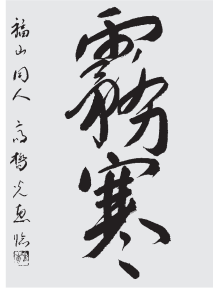 霧寒
福山同人 高橋光恵臨